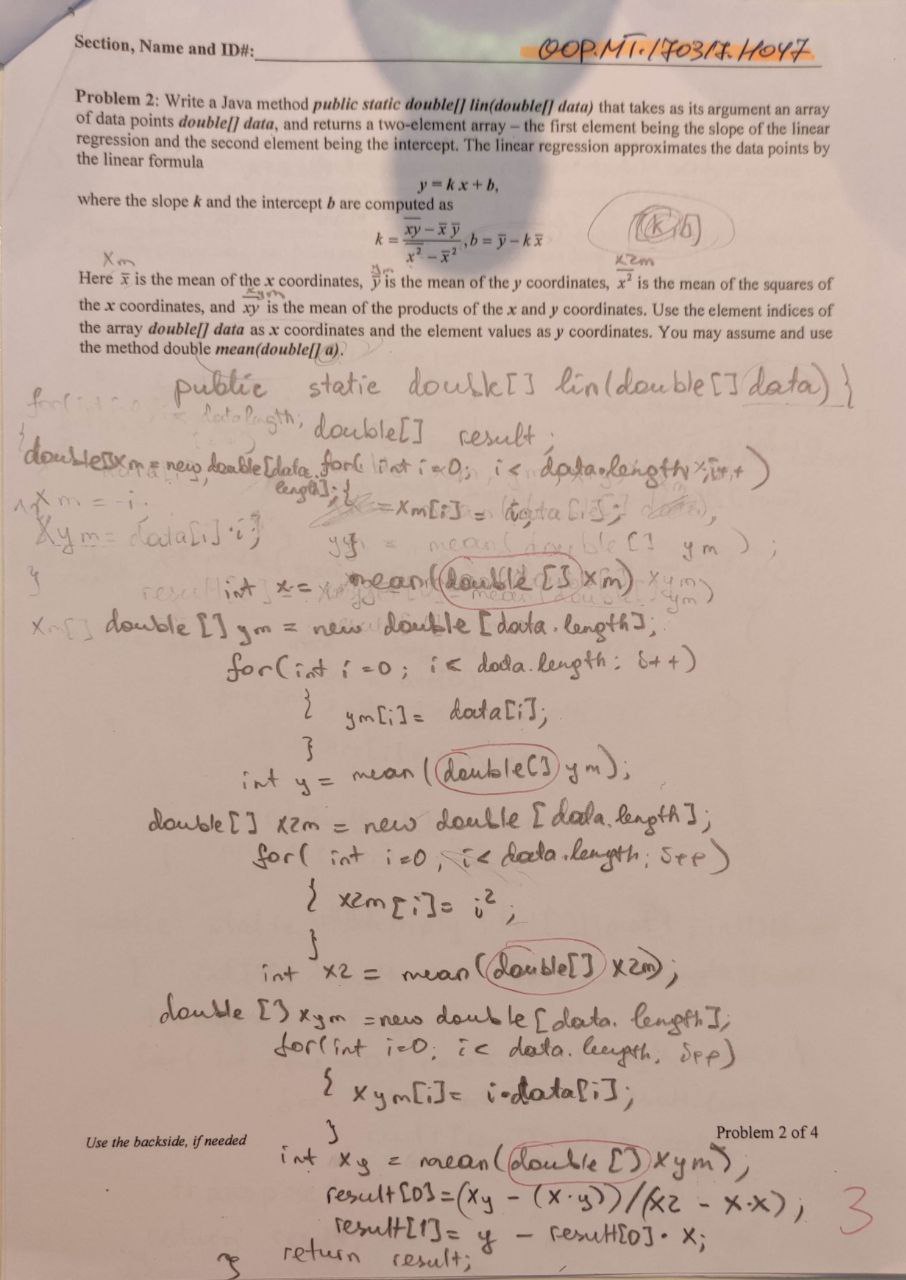 Section, Name and ID#:
OOP.MT.170317.H047
Problem 2: Write a Java method public static double[] lin(double[] data) that takes as its argument an array
of data points double[] data, and returns a two-element array – the first element being the slope of the linear
regression and the second element being the intercept. The linear regression approximates the data points by
the linear formula
y = k x + b,
where the slope k and the intercept b are computed as
k = (x̅y̅ - x̅ y̅) / (x̅²̅ - x̅²), b = y̅ - k x̅
[k, b]
Xm ym x2m
Here x̅ is the mean of the x coordinates, y̅ is the mean of the y coordinates, x̅²̅ is the mean of the squares of
xym
the x coordinates, and x̅y̅ is the mean of the products of the x and y coordinates. Use the element indices of
the array double[] data as x coordinates and the element values as y coordinates. You may assume and use
the method double mean(double[] a).
public static double[] lin(double[] data) {
double[] result;
double[] xm = new double[data.length]; for( int i=0; i< data.length; i++)
{ xm[i] = i;
Xm = i
Xym = data[i]·i;
ym = mean(double[] ym);
}
int x = mean(double[] xm)
double [] ym = new double [data.length];
for(int i=0; i< data.length; i++)
{ ym[i]= data[i];
}
int y = mean (double[] ym);
double[] x2m = new double [data.length];
for( int i=0; i< data.length; ipp)
{ x2m[i]= i²;
}
int x2 = mean(double[] x2m);
double [] xym = new double [data.length];
for(int i=0; i< data.length; ipp)
{ xym[i]= i·data[i];
}
Use the backside, if needed
Problem 2 of 4
int xy = mean(double[] xym);
result[0]=(xy - (x·y))/(x2 - x·x);
result[1]= y - result[0]· x;
return result;
}
3